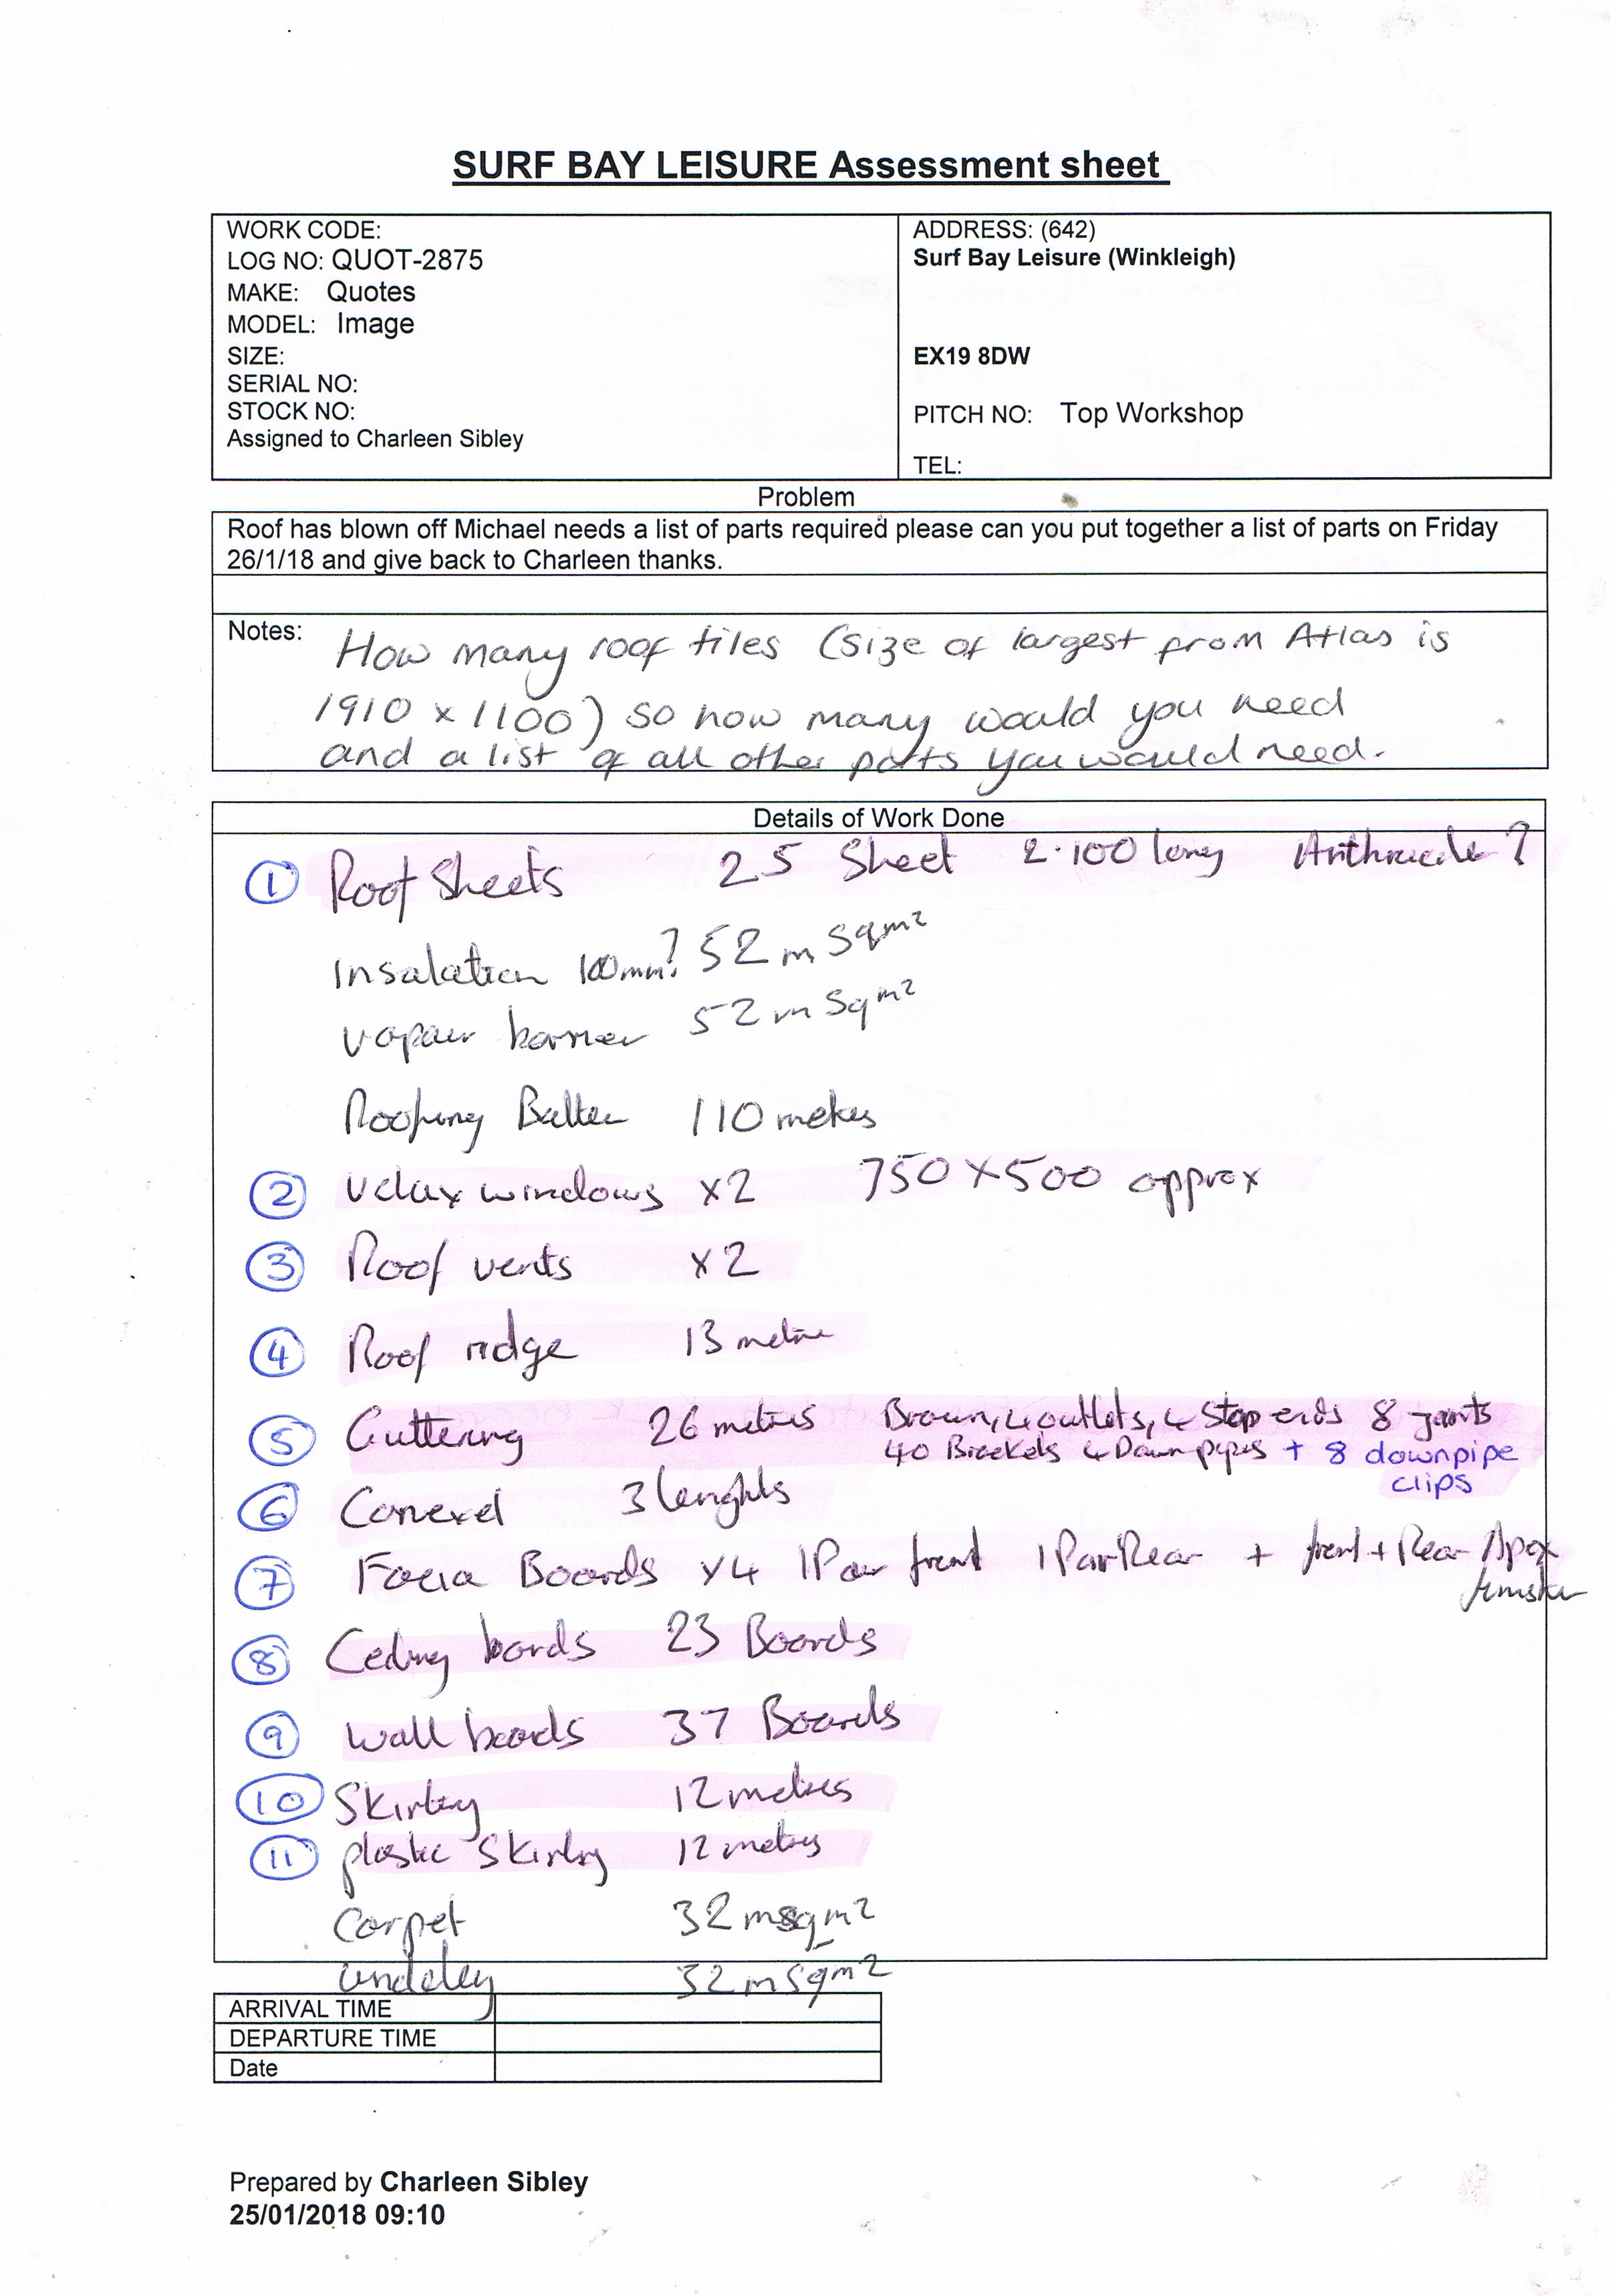 SURF BAY LEISURE Assessment sheet
WORK CODE:
LOG NO: QUOT-2875
MAKE: Quotes
MODEL: Image
SIZE:
SERIAL NO:
STOCK NO:
Assigned to Charleen Sibley
ADDRESS: (642)
Surf Bay Leisure (Winkleigh)
EX19 8DW
PITCH NO: Top Workshop
TEL:
Problem
Roof has blown off Michael needs a list of parts required please can you put together a list of parts on Friday
26/1/18 and give back to Charleen thanks.
Notes: How many roof tiles (size of largest from Atlas is
1910 x 1100) so how many would you need
and a list of all other parts you would need.
Details of Work Done
1 Roof Sheets 25 Sheet 2.100 long Anthracite ?
Insalation 100mm? 52 m Sqm²
vapour barrier 52 m Sqm²
Roofing Batten 110 metres
2 velux windows x2 750 X 500 approx
3 Roof vents x2
4 Roof ridge 13 metre
5 Guttering 26 metres Brown, 4 outlets, 4 Stop ends 8 joints
40 Brackets 4 Down pipes + 8 downpipe
clips
6 Canexel 3 lenghts
7 Facia Boards x4 1 Pair front 1 Pair Rear + front + Rear Apex
8 Ceiling boards 23 Boards
9 wall boards 37 Boards
10 Skirting 12 metres
11 plastic Skirting 12 metres
Carpet 32 msqm²
underlay 32 m Sqm²
ARRIVAL TIME
DEPARTURE TIME
Date
Prepared by Charleen Sibley
25/01/2018 09:10